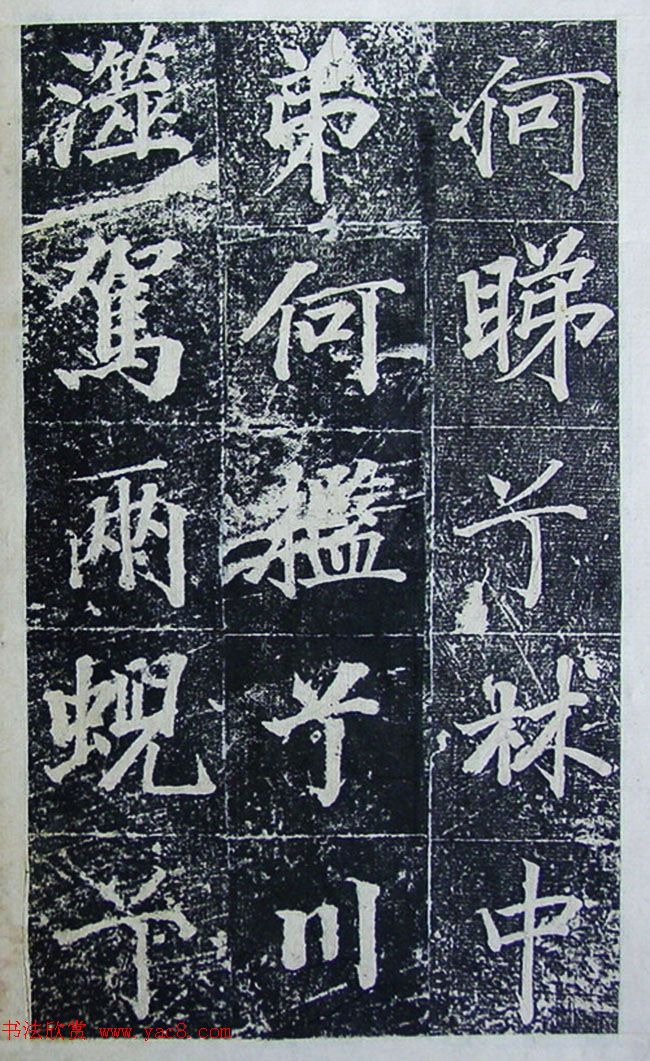 何睇兮林中
弟何檻兮川
澨駕兩蜺兮
书法欣赏 www.yac8.com